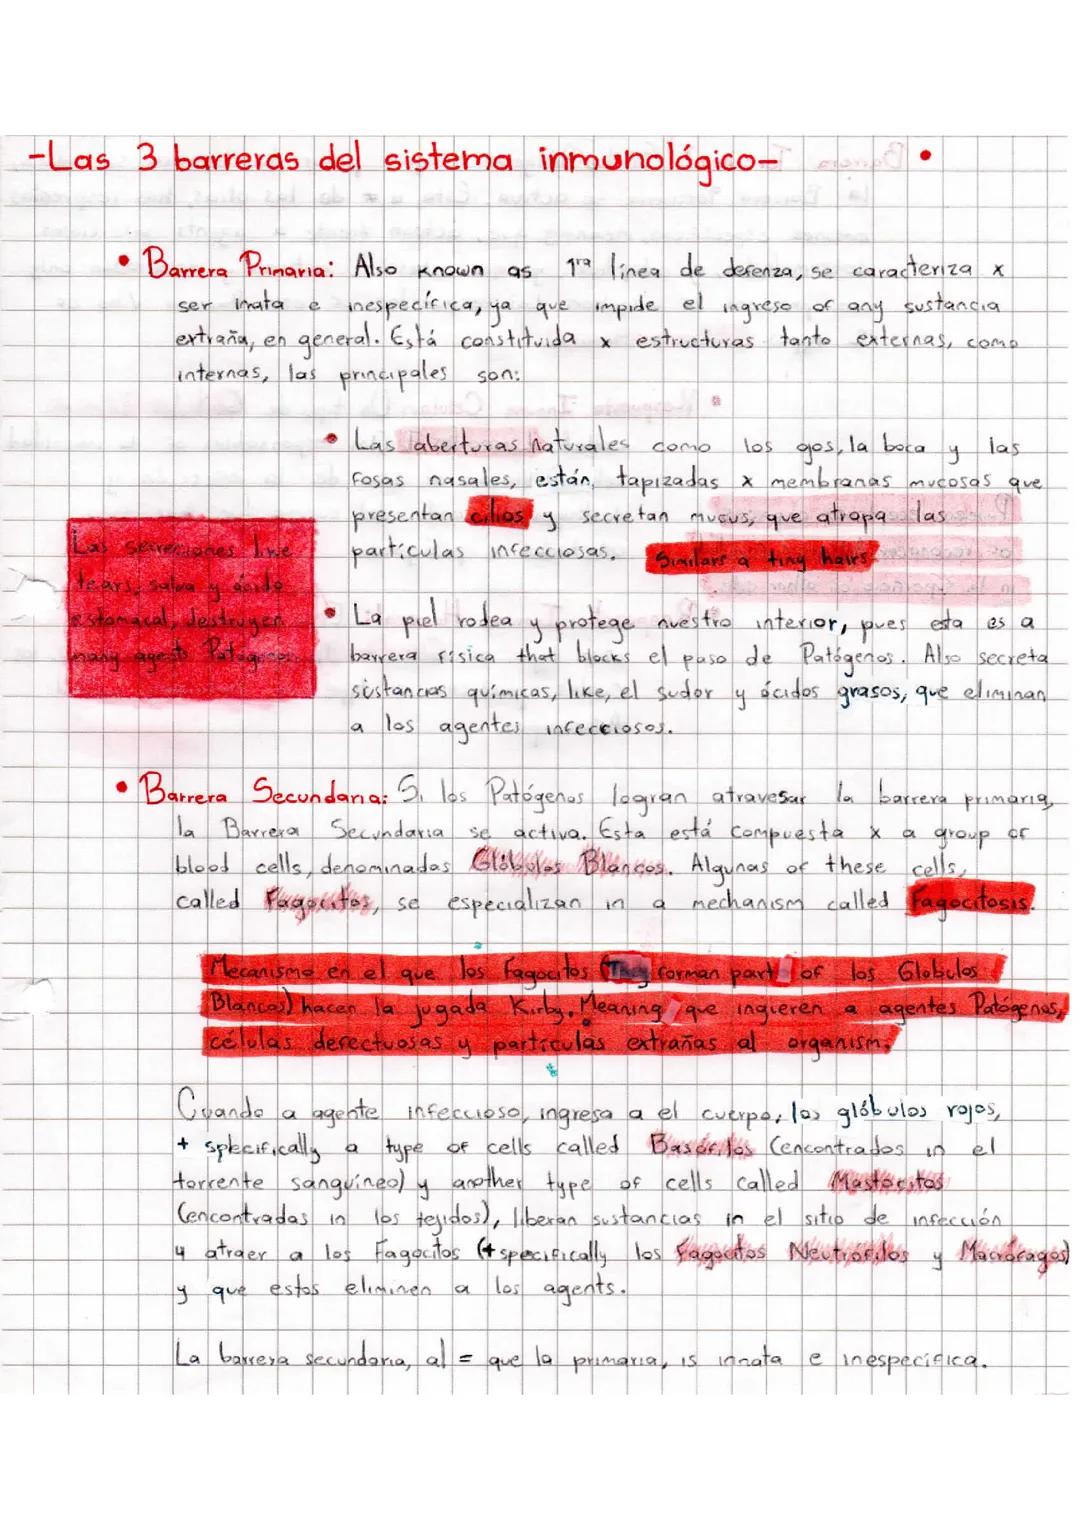 -Las 3 barreras del sistema inmunológico-
• Barrera Primaria: Also known as 1ra línea de defenza, se caracteriza x
ser inata e inespecífica, ya que impide el ingreso of any sustancia
extraña, en general. Está constituida x estructuras tanto externas, como
internas, las principales son:
• Las aberturas naturales como los ojos, la boca y las
fosas nasales, están, tapizadas x membranas mucosas que
presentan cilios y secretan mucus, que atrapa las
partículas infecciosas. Similars a tiny hairs
Las secreciones like
tears, saliva y ácido
estomacal, destruyen
many agents Patógenos.
• La piel rodea y protege nuestro interior, pues esta es a
barrera física that blocks el paso de Patógenos. Also secreta
sustancias químicas, like, el sudor y ácidos grasos, que eliminan
a los agentes infecciosos.
• Barrera Secundaria: Si los Patógenos logran atravesar la barrera primaria,
la Barrera Secundaria se activa. Esta está compuesta x a group of
blood cells, denominadas Glóbulos Blancos. Algunas of these cells,
called Fagocitos, se especializan in a mechanism called Fagocitosis.
Mecanismo en el que los Fagocitos (They forman part of los Globulos
Blancos) hacen la jugada Kirby. Meaning que ingieren a agentes Patógenos,
células defectuosas y partículas extrañas al organism.
Cuando a agente infeccioso, ingresa a el cuerpo, los glóbulos rojos,
+ specifically a type of cells called Basófilos (encontrados in el
torrente sanguíneo) y another type of cells called Mastocitos
(encontradas in los tejidos), liberan sustancias in el sitio de infección
y atraer a los Fagocitos (+ specifically los Fagocitos Neutrófilos y Macrófagos)
y que estos eliminen a los agents.
La barrera secundaria, al = que la primaria, is innata e inespecífica.